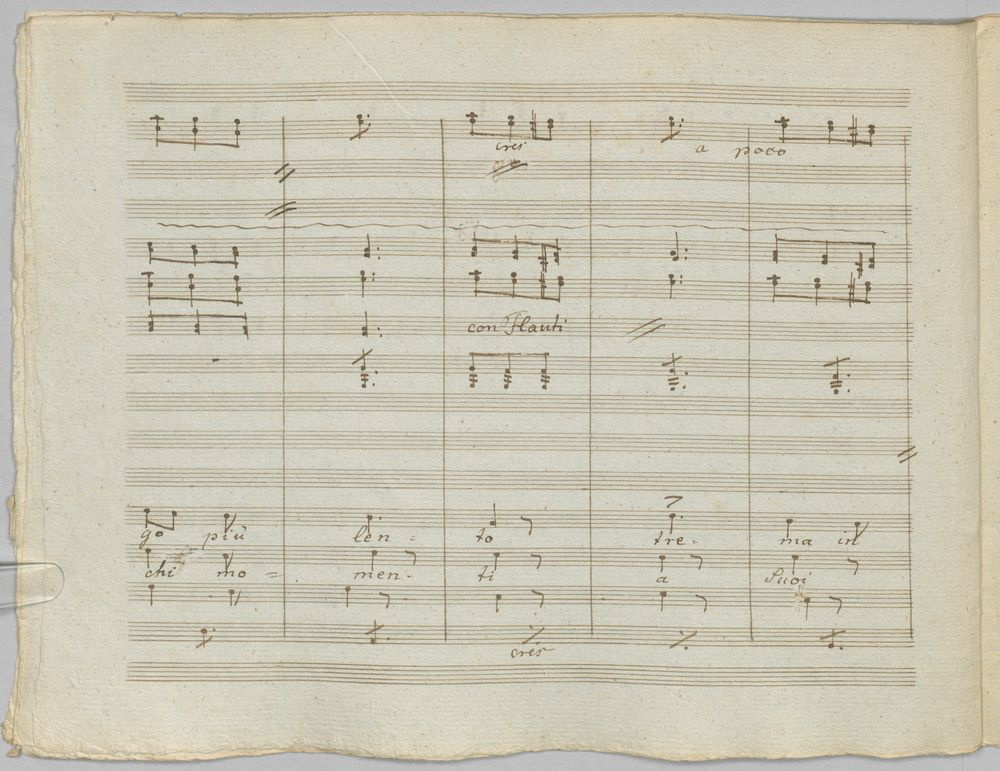 cres a poco
con Flauti
go più len - to tre - ma in
chi mo = men - ti a Suoi
cres